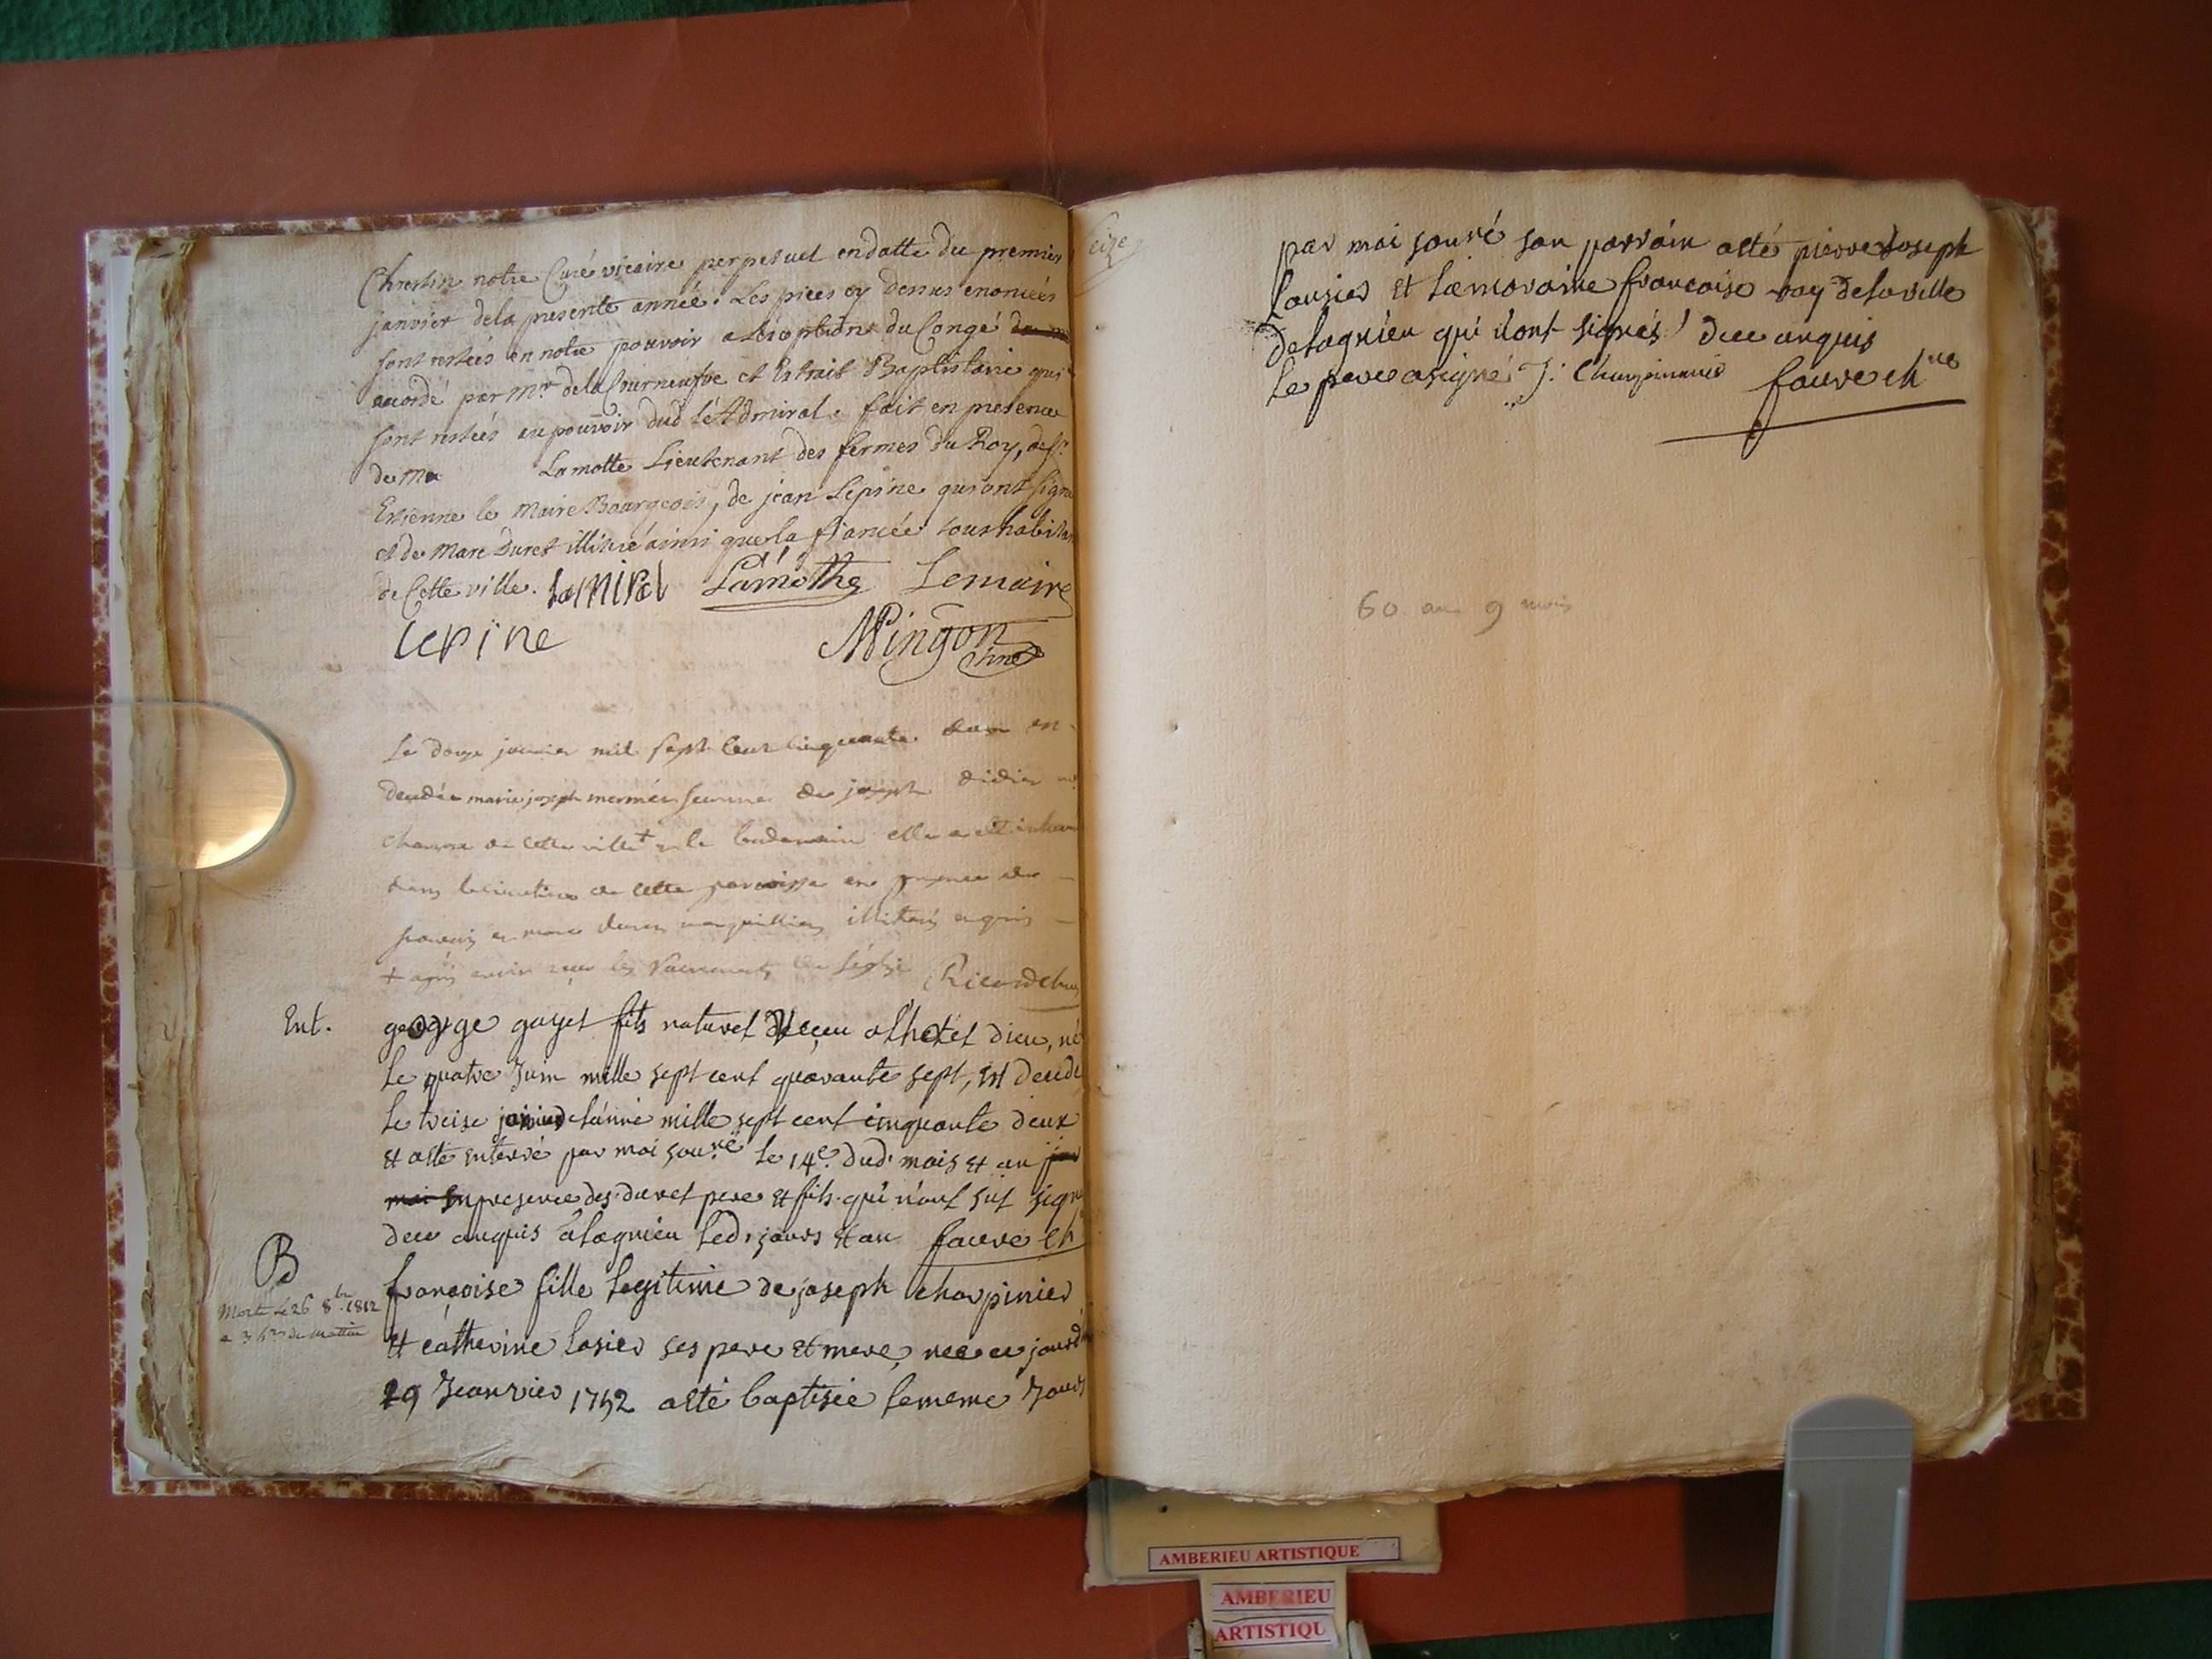 Chrestin notre Curé vicaire perpetuel en datte du premier
janvier dela presente année. Les pieces cy dessus enoncées
sont restées en notre pouvoir a L'éxception du Congé
accordé par Mr. dela Courneufve et Extrait Baptistaire qui
sont restées au pouvoir dud. l'Admiral. fait en presence
de Mr Lamotte Lieutenant des fermes du Roy, de Sr.
Estienne le Maire Bourgeois, de jean Lepine qui ont signé
et de Marc Duret illitiré ainsi que la fiancée tous habitans
de Cette ville. Lamiral Lamothe Lemaire
Lepine Mingon
Le douze janvier mil sept cent cinquante deux en
décédée marie joseph mermés femme de joseph didier
de cette ville + et le lendemain elle a été
dans le cimetiere de cette paroisse en presence de
et marc duret marguilliers illitirés enquis
+ après avoir reçu les sacrements de l'église
Ent. george gayet fils naturel Reçeu a l'hotel dieu, né
le quatre Juin mille sept cent quarante sept, est decedé
le treise janvier l'année mille sept cent cinquante deux
et a esté enterré par moi sou.né le 14e. dud. mois et an
en presence des duret pere et fils qui n'ont sut signé
dece enquis a lagnieu led. jours et an favre ch
B françoise fille legitime de joseph charpinier
Morte le 26 8bre 1812
a 3 hres du mattin
et catherine losier ses pere et mere, nee ce jourd
29 Jeanvier 1752 a esté baptisée le meme Jours
par moi souné son parrain a esté pierre Joseph
lousier et la maraine francoise ray de la ville
de lagnieu qui n'ont signés dece enquis
le pere a signé J. Charpinier favre chre
60 ans 9 mois
AMBERIEU ARTISTIQUE
AMBERIEU
ARTISTIQU